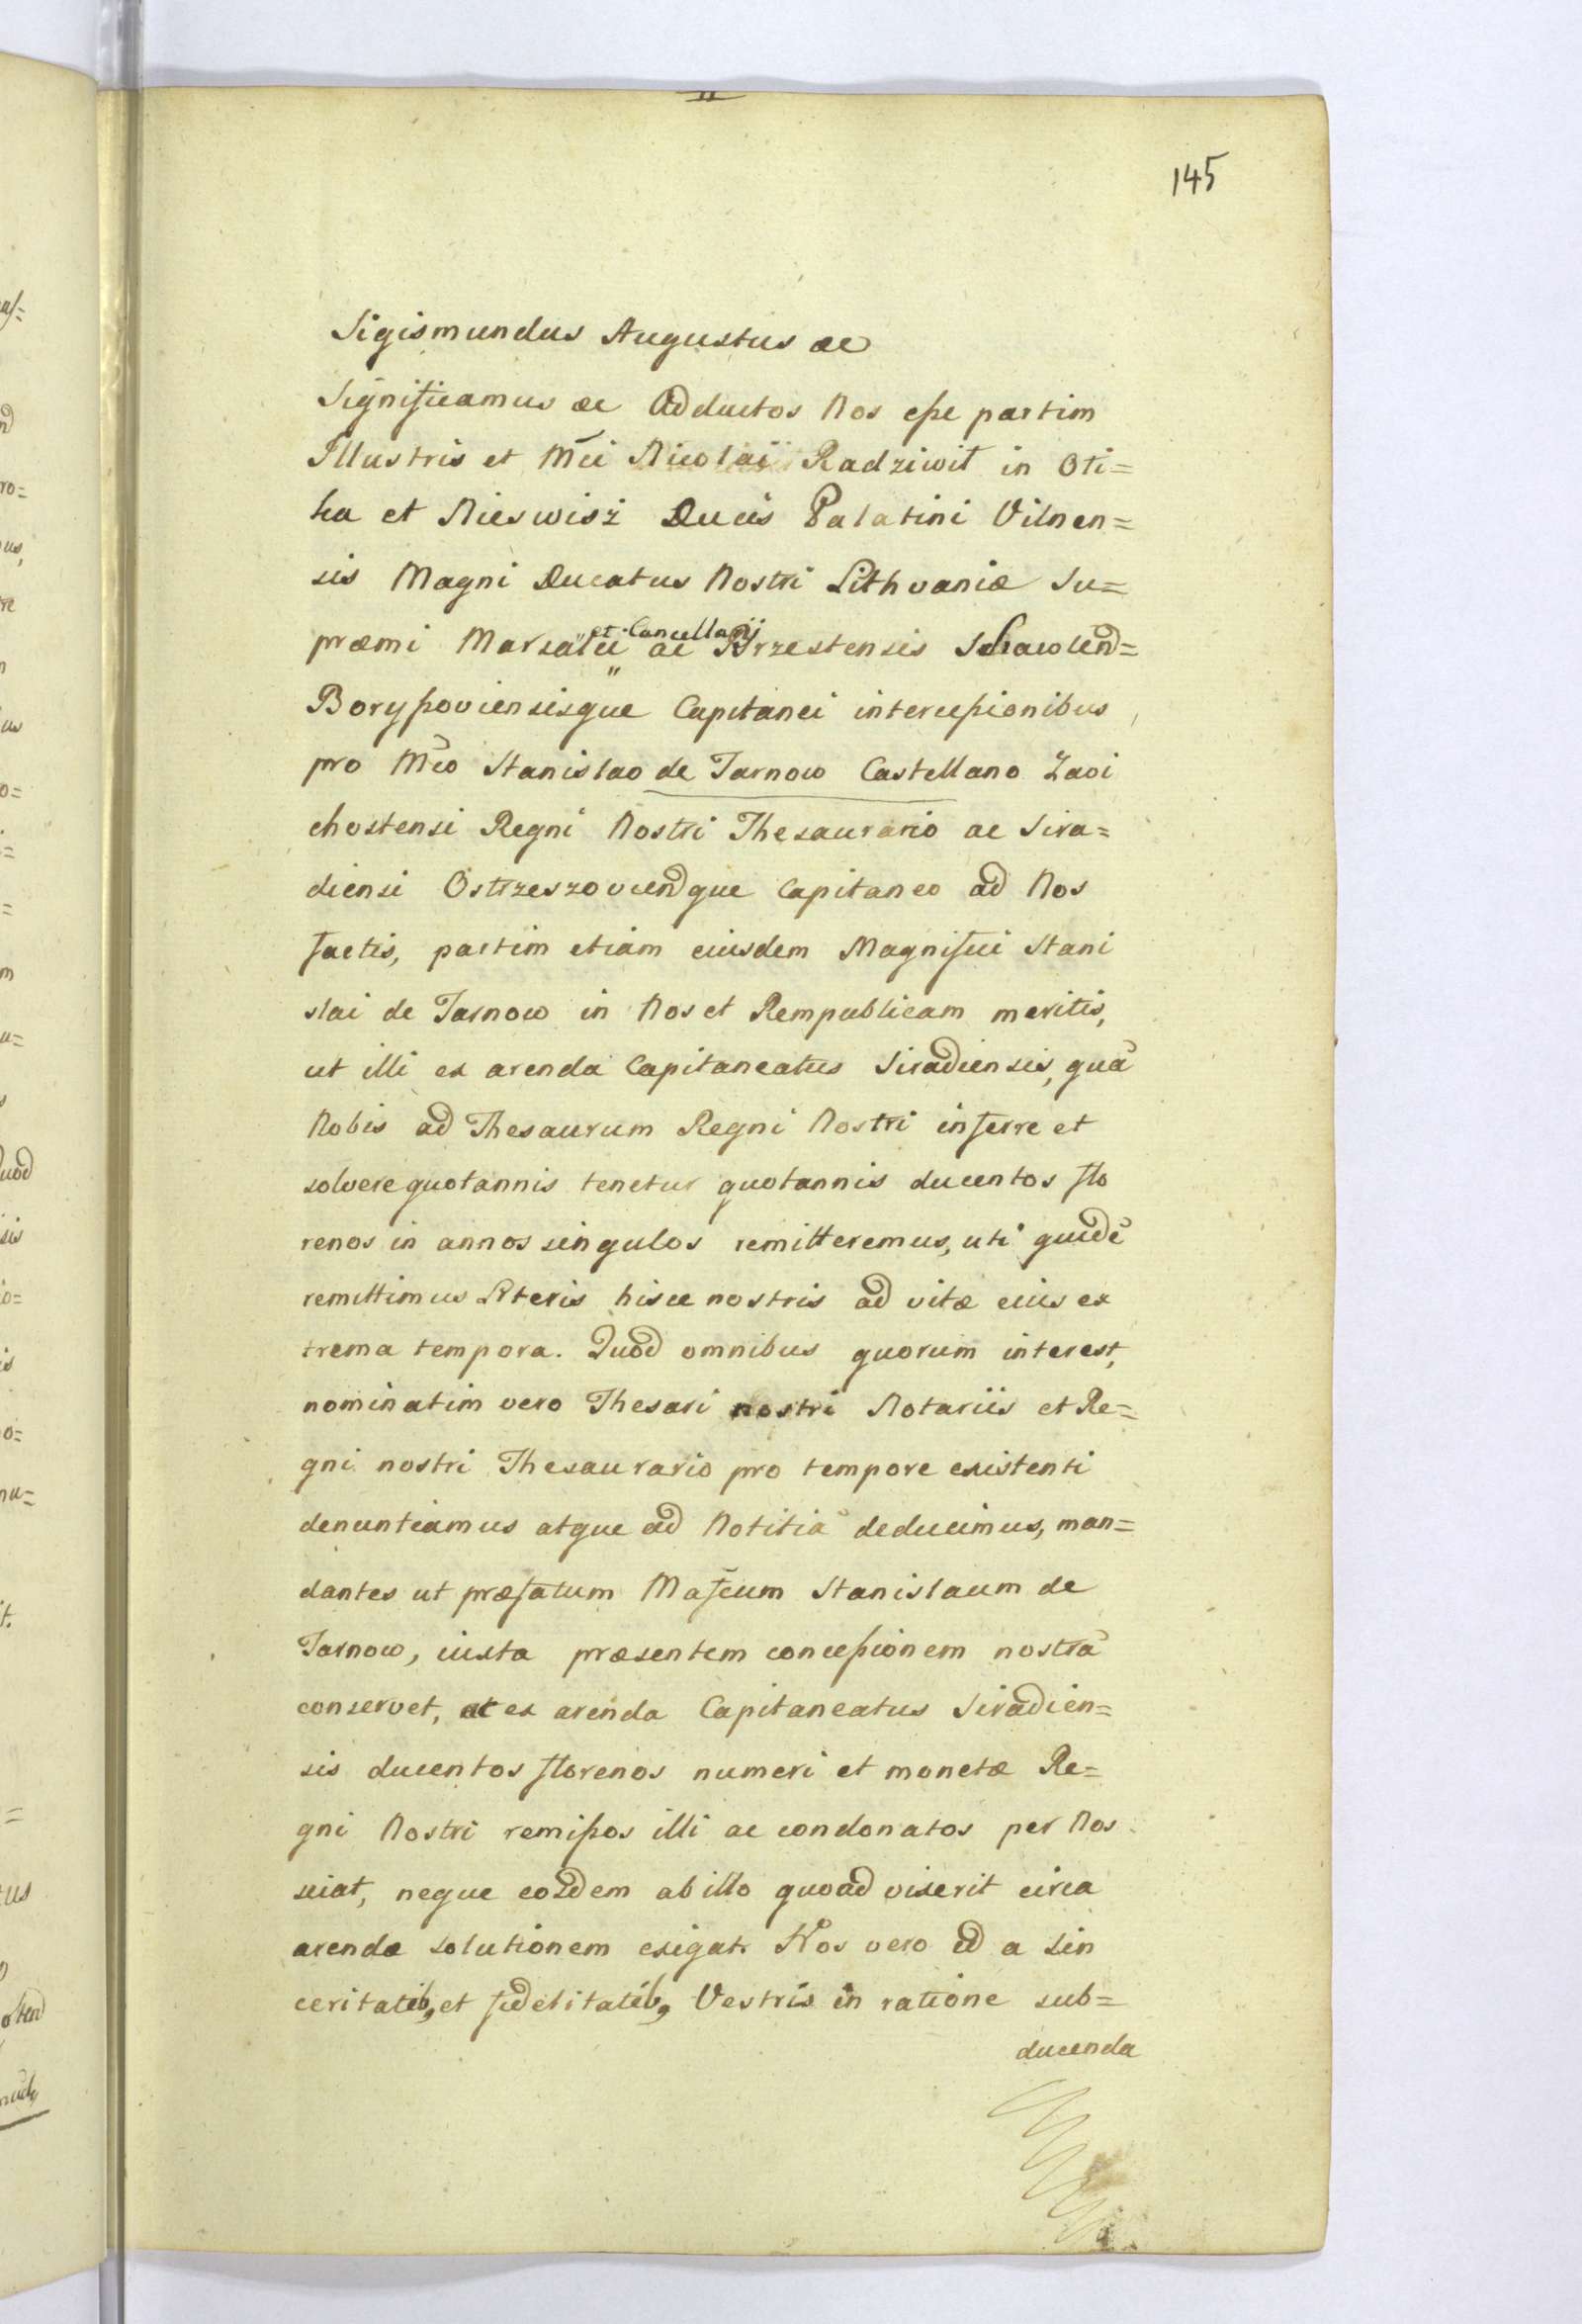 145
Sigismundus Augustus ac
Significamus ac Adductos Nos esse partim
Illustris et Mci Nicolai Radziwił in Oti=
ka et Nieswisż Ducis Palatini Vilnen=
sis Magni Ducatus Nostri Lithvaniæ Su=
præmi Marsalci et Cancellarij ac Brzestensis Schawlen=
Boryssoviensisque Capitanei intercessionibus,
pro Mco Stanislao de Tarnow Castellano Zavi
chostensi Regni Nostri Thesaurario ac Sira=
diensi Ostrzeszoviendque Capitaneo ad Nos
factis, partim etiam eiusdem Magnifici Stani
slai de Tarnow in Nos et Rempublicam meritis,
ut illi ex arenda Capitaneatus Siradiensis, quã
Nobis ad Thesaurum Regni Nostri inferre et
solvere quotannis tenetur quotannis ducentos flo
renos in annos singulos remitteremus, uti quidẽ
remittimus Literis hisce nostris ad vitæ eius ex
trema tempora. Quod omnibus quorum interest,
nominatim vero Thesari nostri Notariis et Re=
gni nostri Thesaurario pro tempore existenti
denuntiamus atque ad Notitiã deducimus, man=
dantes ut præfatum Mafcum Stanislaum de
Tarnow, iuxta præsentem concessionem nostrã
conservet, ac ex arenda Capitaneatus Siradien=
sis ducentos florenos numeri et monetæ Re=
gni Nostri remissos illi ac condonatos per Nos
sciat, neque eosdem ab illo quoad vixerit circa
arendæ solutionem exigat. Nos vero id a Sin
ceritatib, et fidelitatib, Vestris in ratione sub=
ducenda